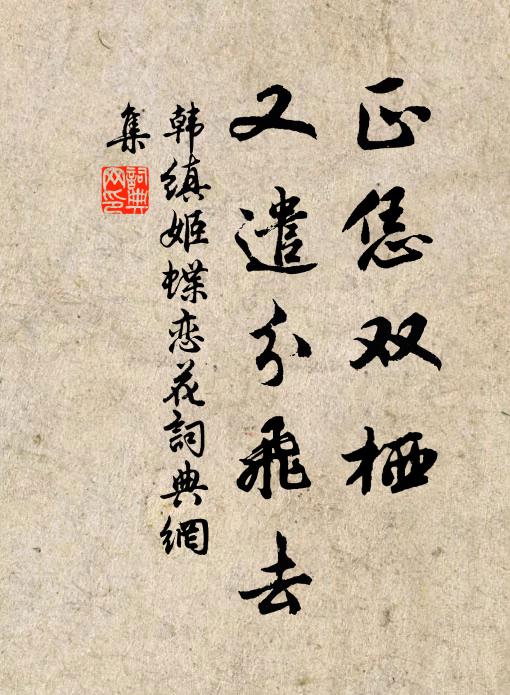 正恁双栖
又遣分飞去
韩缜姬蝶恋花詞典網
集
詞典网印